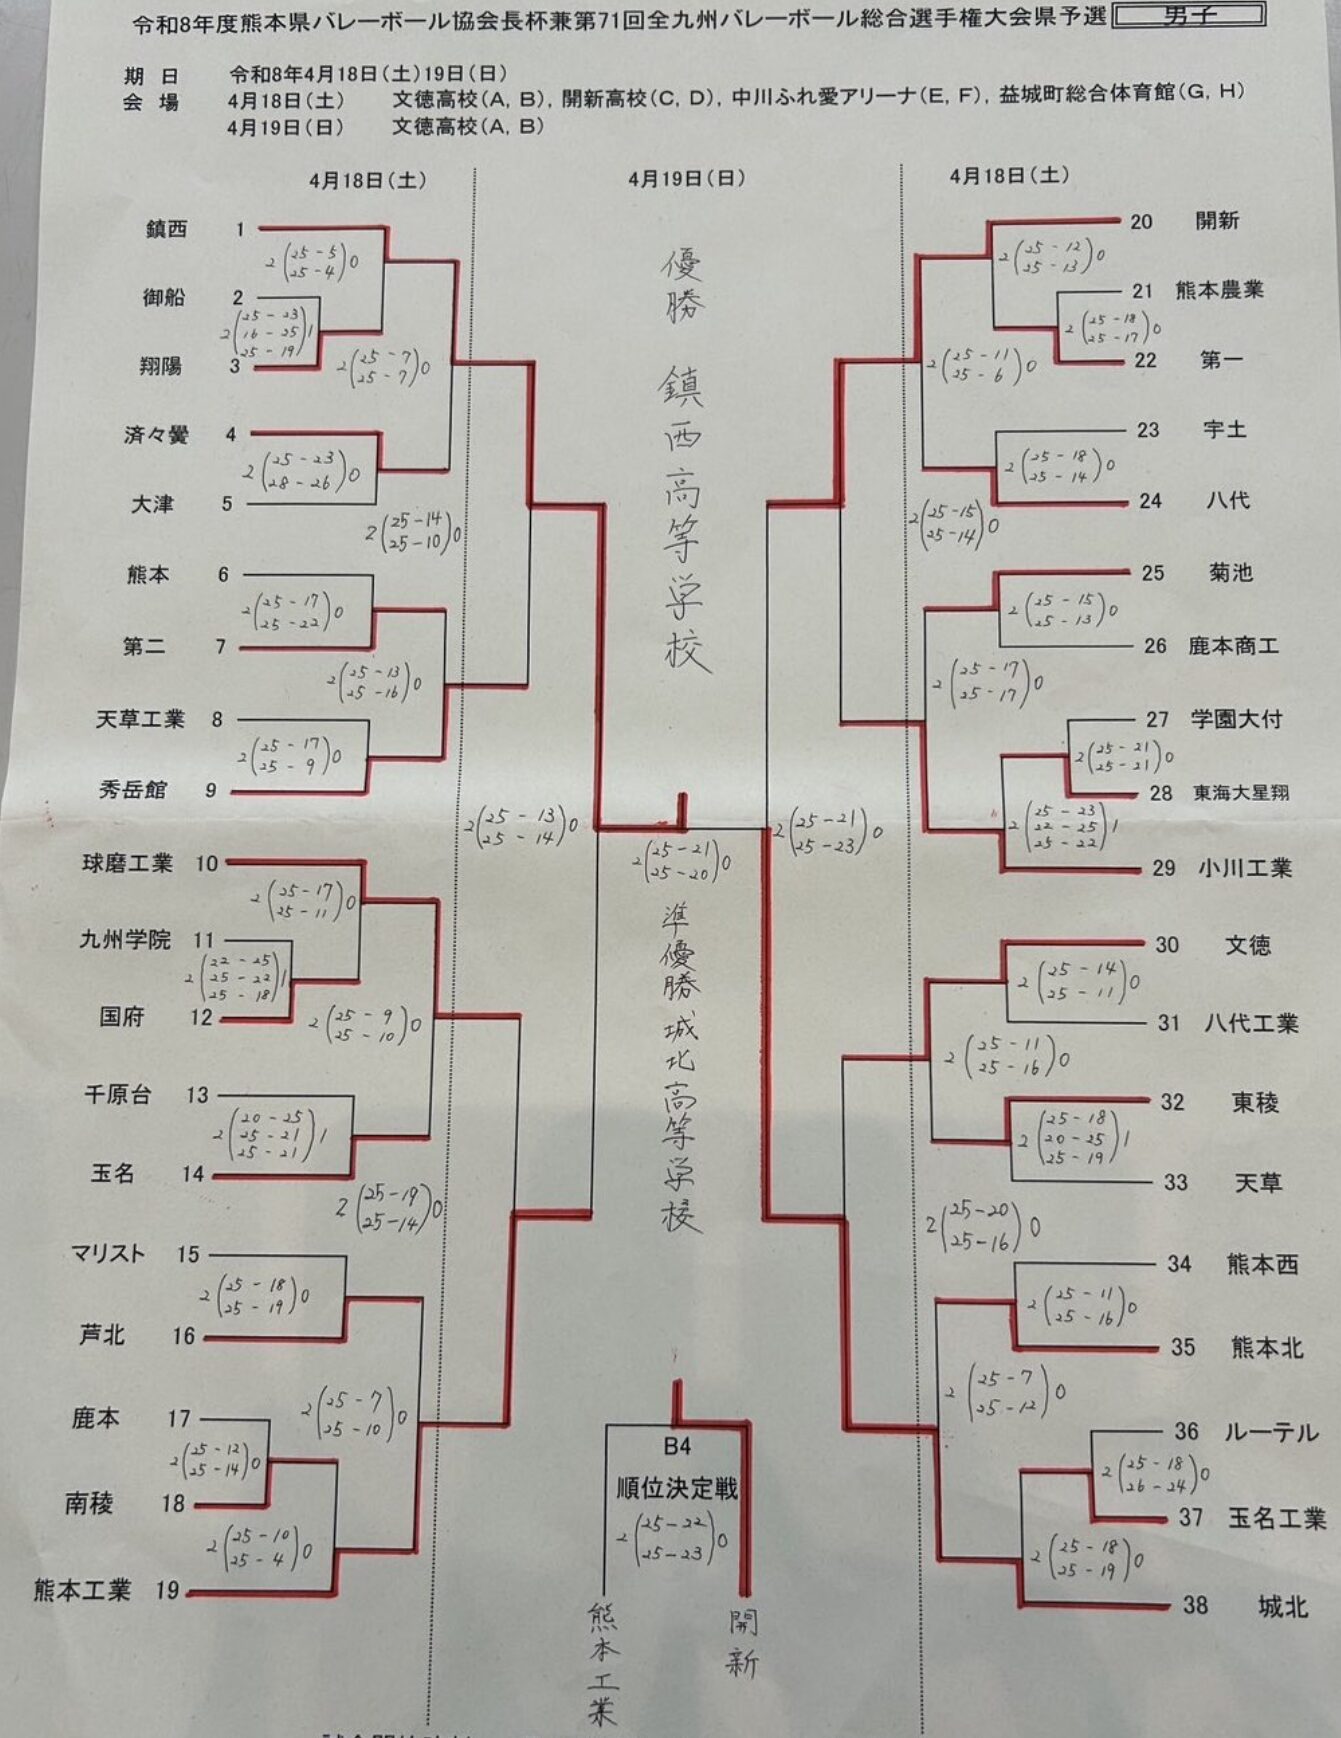 令和8年度熊本県バレーボール協会長杯兼第71回全九州バレーボール総合選手権大会県予選 男子
期日 令和8年4月18日(土)19日(日)
会場 4月18日(土) 文徳高校(A, B), 開新高校(C, D), 中川ふれ愛アリーナ(E, F), 益城町総合体育館(G, H)
4月19日(日) 文徳高校(A, B)
4月18日(土)
4月19日(日)
4月18日(土)
鎮西 1
2(25-5 25-4)0
御船 2
2(25-23 16-25 25-19)1
翔陽 3
2(25-7 25-7)0
済々黌 4
2(25-23 28-26)0
大津 5
2(25-14 25-10)0
熊本 6
2(25-17 25-22)0
第二 7
2(25-13 25-16)0
天草工業 8
2(25-17 25-9)0
秀岳館 9
2(25-13 25-14)0
球磨工業 10
2(25-17 25-11)0
九州学院 11
2(22-25 25-22 25-18)1
国府 12
2(25-9 25-10)0
千原台 13
2(20-25 25-21 25-21)1
玉名 14
2(25-19 25-14)0
マリスト 15
2(25-18 25-19)0
芦北 16
2(25-7 25-10)0
鹿本 17
2(25-12 25-14)0
南稜 18
2(25-10 25-4)0
熊本工業 19
優勝 鎮西高等学校
2(25-21 25-20)0
準優勝 城北高等学校
B4
順位決定戦
2(25-22 25-23)0
熊本工業
開新
20 開新
2(25-12 25-13)0
21 熊本農業
2(25-18 25-17)0
22 第一
2(25-11 25-6)0
23 宇土
2(25-18 25-14)0
24 八代
2(25-15 25-14)0
25 菊池
2(25-15 25-13)0
26 鹿本商工
2(25-17 25-17)0
27 学園大付
2(25-21 25-21)0
28 東海大星翔
2(25-23 22-25 25-22)1
29 小川工業
2(25-21 25-23)0
30 文徳
2(25-14 25-11)0
31 八代工業
2(25-11 25-16)0
32 東稜
2(25-18 20-25 25-19)1
33 天草
2(25-20 25-16)0
34 熊本西
2(25-11 25-16)0
35 熊本北
2(25-7 25-12)0
36 ルーテル
2(25-18 26-24)0
37 玉名工業
2(25-18 25-19)0
38 城北